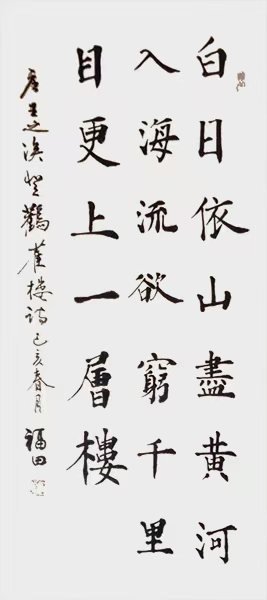 白日依山盡黃河
入海流欲窮千里
目更上一層樓
唐王之渙登鸛雀樓詩己亥春月
福田